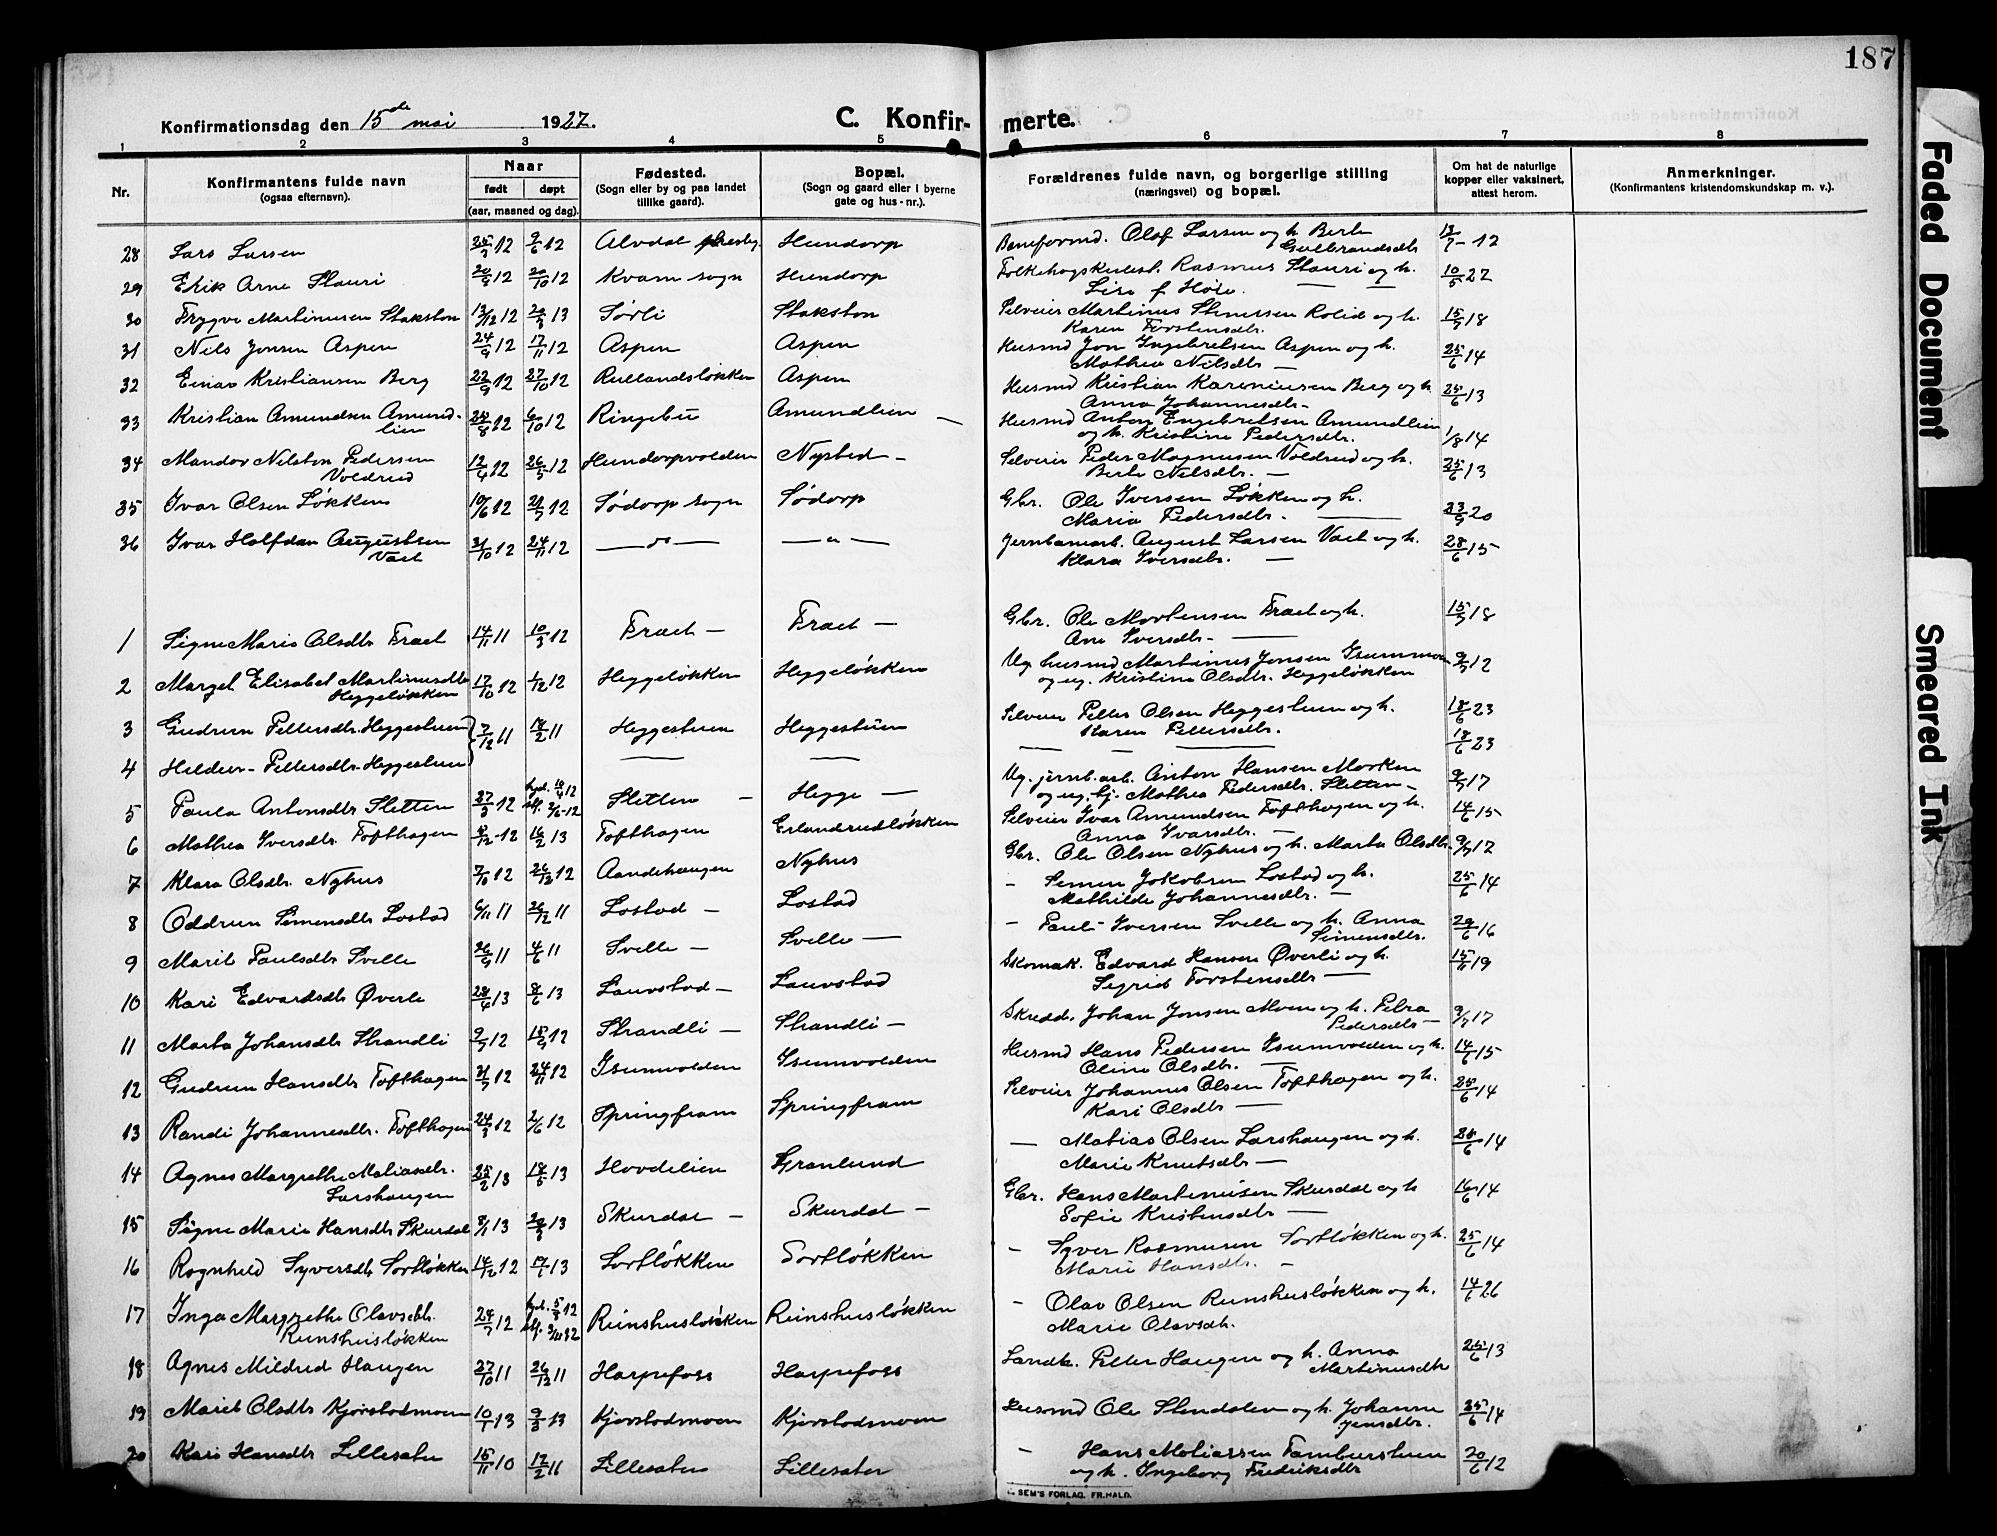 187
Konfirmationsdag den 15de mai 1927.
C. Konfirmerte.
1 2 3 4 5 6 7 8
Nr.
Konfirmantens fulde navn
(ogsaa efternavn).
Naar
født døpt
(aar, maaned og dag).
Fødested.
(Sogn eller by og paa landet
tillike gaard).
Bopæl.
(Sogn og gaard eller i byerne
gate og hus-nr.).
Forældrenes fulde navn, og borgerlige stilling
(næringsvei) og bopæl.
Om hat de naturlige
kopper eller vaksinert,
attest herom.
Anmerkninger.
(Konfirmantens kristendomskundskap m. v.).
28 Lars Larsen 25/3 12 9/6 12 Alvdal Hundorp Baneformd. Olaf Larsen og h. Berte Gulbrandsdtr 13/7 - 12
29 Erik Arne Stauri 20/9 12 20/10 12 Kvam sogn Hundorp Folkehøgskolest. Rasmus Stauri og h. Lise f. Høie. 10/5 22
30 Trygve Martinusen Stakston 13/12 12 Sørli Stakston Selveier Martinus Stenersen Rolid og h. Karen Torstensdtr. 15/7 18
31 Nils Jonsen Aspen 24/9 12 17/11 12 Aspen Aspen Husmd Jon Ingebretsen Aspen og h. Mathea Nilsdtr. — 25/6 14
32 Einar Kristiansen Berg 22/9 12 27/10 12 Rullandsløkken Aspen Husmd Kristian Kareniusen Berg og h. Anna Johannesdtr. 25/6 13
33 Kristian Amundsen Amundlien 25/8 12 6/10 12 Ringebu Amundlien — Husmd Anton Engebretsen Amundlien og h. Kristine Pedersdtr. 1/8 14
34 Mandor Nilston Pedersen Voldrud 12/4 12 26/5 12 Hundorpvolden Nysted - Selveier Peder Magnusen Voldrud og h. Berte Nilsdtr. — 25/6 13
35 Ivar Olsen Løkken 10/6 12 21/7 12 Sødorp sogn Sødorp Gbr. Ole Iversen Løkken og h. Maria Pedersdtr. — 23/9 20
36 Ivar Halfdan Augustsen Vaet 31/10 12 24/11 12 — do — — „ — Jernbanearb. August Larsen Vaet og h. Klara Iversdtr. — 28/6 15
1 Signe Marie Olsdtr Fraet 14/11 11 10/3 12 Fraet — Fraet — Gbr. Ole Mortensen Fraet og h. Ane Iversdtr. — 15/7 18
2 Margit Elisabet Martinusdtr Heggeløkken 17/10 12 1/12 12 Heggeløkken Heggeløkken Ug. husmd Martinus Jonsen Isummoen og ug. Kristine Olsdtr. Heggeløkken 9/7 12
3 Gudrun Pettersdtr. Heggestuen 7/12 11 Heggestuen Heggestuen Selveier Petter Olsen Heggestuen og h. Karen Pettersdtr. 18/6 23
4 Hildur Pettersdtr. Heggestuen — — — — — 18/6 23
5 Paula Antonsdtr Sletten 27/3 12 Sletten — Hegge — Ug. jernb.arb. Anton Hansen Morken og ug. tj. Mathea Pedersdtr. Sletten — 9/7 17
6 Mathea Iversdtr. Tofthagen 16/2 13 Tofthagen Erlandrudløkken Selveier Ivar Amundsen Tofthagen og h. Anna Ivarsdtr. — 14/6 15
7 Klara Olsdtr. Nyhus 7/10 12 26/12 12 Aandehaugen Nyhus Gbr. Ole Olsen Nyhus og h. Marta Olsdtr. 9/7 12
8 Oddrun Simensdtr Lostad 6/11 11 26/12 11 Lostad — Lostad - Simen Jakobsen Lostad og h. Mathilde Johannesdtr. — 25/6 14
9 Marit Paulsdtr Svelle 4/6 11 Svelle — Svelle — - Paul Iversen Svelle og h. Anna Simensdtr. 29/6 16
10 Kari Edvardsdtr Øverli 28/4 13 8/6 13 Lauvstad — Lauvstad Skomak. Edvard Hansen Øverli og h. Sigrid Torstensdtr — 15/11 19
11 Marta Johansdtr Strandli 9/7 12 Strandli — Strandli — Skredd. Johan Jonsen Moen og h. Petra Pedersdtr — 9/7 17
12 Gudrun Hansdtr Tofthagen 24/11 12 Isumvolden Isumvolden Husmd Hans Pedersen Isumvolden og h. Oline Olsdtr. — 14/6 15
13 Randi Johannesdtr. Tofthagen 24/3 12 2/6 12 Springfram Springfram Selveier Johannes Olsen Tofthagen og h. Kari Olsdtr — 25/6 14
14 Agnes Margrethe Matiasdtr. Larshaugen 25/2 13 18/5 13 Hovdelien Granlund — Matias Olsen Larshaugen og h. Marie Knutsdtr — 25/6 14
15 Signe Marie Hansdtr Skurdal 8/1 13 Skurdal — Skurdal — Gbr. Hans Martinusen Skurdal og h Sofie Kristensdtr — 16/6 14
16 Ragnhild Syversdtr Sortløkken 14/12 12 Sortløkken Sortløkken - Syver Rasmusen Sortløkken og h. Marie Hansdtr. — 25/6 14
17 Inga Margrethe Olavsdtr. Runshusløkken 24/7 12 Runshusløkken Runshusløkken - Olav Olsen Runshusløkken og h. Marie Olavsdtr. 14/6 26
18 Agnes Mildrid Haugen 27/10 11 26/12 11 Harpefoss Harpefoss Landh. Petter Haugen og h. Anna Martinusdtr 25/6 13
19 Marit Olsdtr Kjørstadmoen 10/1 13 9/3 13 Kjørstadmoen Kjørstadmoen Husmd Ole Stendalen og h. Johanne Jensdtr. 25/6 14
20 Kari Hansdtr Lillesæter 15/11 10 12/2 11 Lillesæter Lillesæter - Hans Matiassen Tamburstuen og h. Ingeborg Fredriksdtr 20/6 12
SEM'S FORLAG, FR.HALD.
Faded Document
Smeared Ink